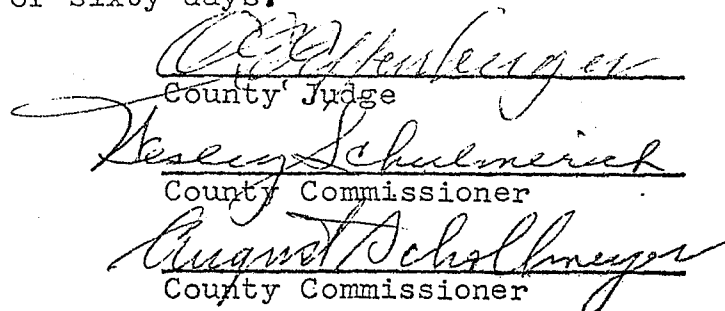 or sixty days.
County Judge
Wesley Schulmerich
County Commissioner
August Schollmeyer
County Commissioner